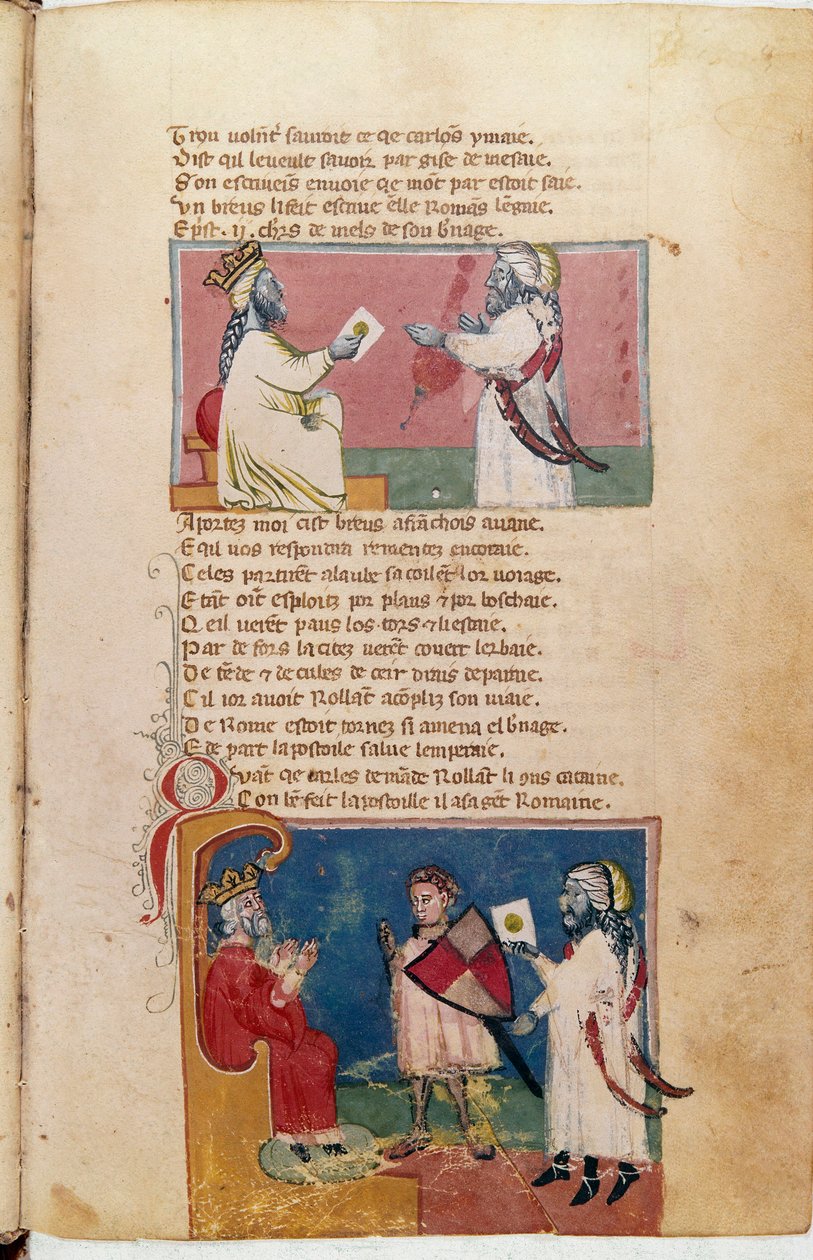 Trou volnt' savroit ce qe carlos ymaie.
Dist qil leveult savoir par gise de mesaie.
Son escriveis envoie qe mot par estoit saie.
Un brevs li feit escrive elle Romans legaie.
Eprist .ii. chrs de mels de son bnage.
Aportez moi cist brevs afranchois avane.
E qil vos respondra rementez encoraie.
Celes partiret alaube sacoilet lor voiage.
E tant oit esploitz por plans ⁊ por boschaie.
Qeil veret los tors ⁊ liestaie.
Par de fors la citez veret covert lerbaie.
De tede ⁊ de cules de ceir dirais
Cil ior avoit Rollat acopliz son viaie.
De Rome estoit tornez si amena el bnage.
E de part lapostoile salue lemperaie.
Qvat qe carles demade Rollat li qns cataine.
Con be feit lapostoille il asaget Romaine.